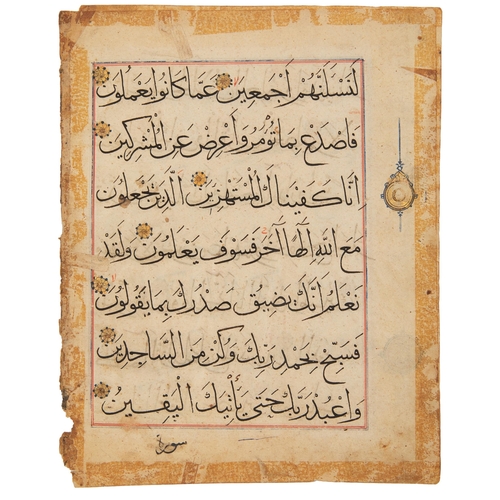 لَنَسْـَٔلَنَّهُمْ أَجْمَعِينَ عَمَّا كَانُوا يَعْمَلُونَ
فَاصْدَعْ بِمَا تُؤْمَرُ وَأَعْرِضْ عَنِ الْمُشْرِكِينَ
إِنَّا كَفَيْنَاكَ الْمُسْتَهْزِئِينَ الَّذِينَ يَجْعَلُونَ
مَعَ اللَّهِ إِلَٰهًا آخَرَ فَسَوْفَ يَعْلَمُونَ وَلَقَدْ
نَعْلَمُ أَنَّكَ يَضِيقُ صَدْرُكَ بِمَا يَقُولُونَ
فَسَبِّحْ بِحَمْدِ رَبِّكَ وَكُنْ مِنَ السَّاجِدِينَ
وَاعْبُدْ رَبَّكَ حَتَّىٰ يَأْتِيَكَ الْيَقِينُ
سورة